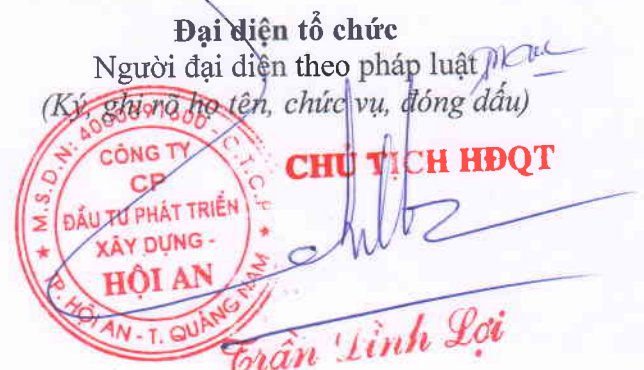 Đại diện tổ chức
Người đại diện theo pháp luật
(Ký, ghi rõ họ tên, chức vụ, đóng dấu)
CHỦ TỊCH HĐQT
M.S.D.N: - C.T.C.P
CÔNG TY
CP
ĐẦU TƯ PHÁT TRIỂN
XÂY DỰNG -
HỘI AN
TP. HỘI AN - T. QUẢNG NAM
Trần Đình Lợi